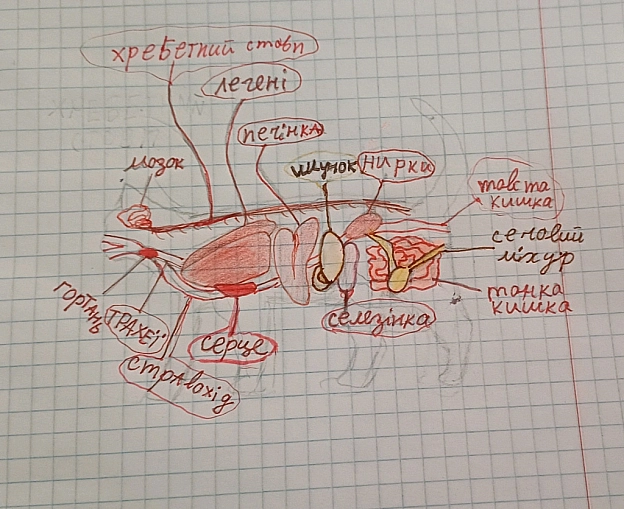 хребетний стовп
легені
печінка
мозок
шлунок
нирка
товста
кишка
сечовий
міхур
тонка
кишка
гортань
трахеї
серце
селезінка
стравохід